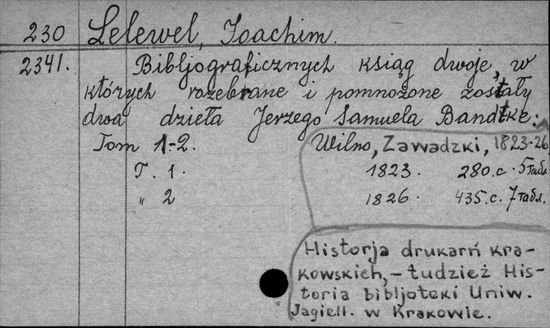 230 Lelewel, Joachim.
2341. Bibljograficznych ksiąg dwoje, w
których rozebrane i pomnożone zostały
dwa dzieła Jerzego Samuela Bandtke:
Tom 1-2. Wilno, Zawadzki, 1823-26
T. 1. 1823. 280.c. 5 табл.
" 2 1826. 435.c. 7 табл.
Historja drukarń kra-
kowskich, – tudzież His-
toria bibljoteki Uniw.
Jagiell. w Krakowie.